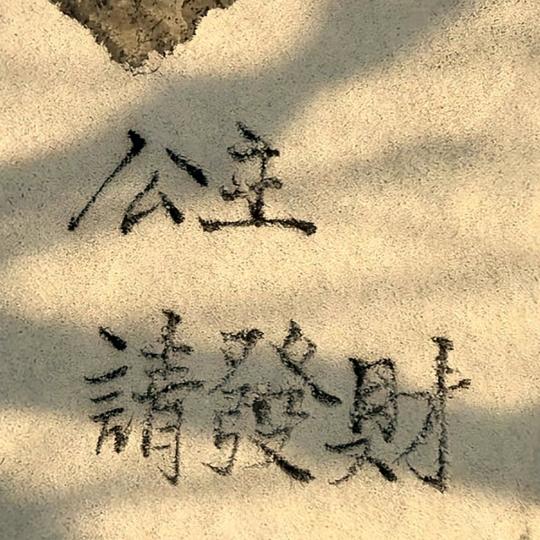 公主
請發財